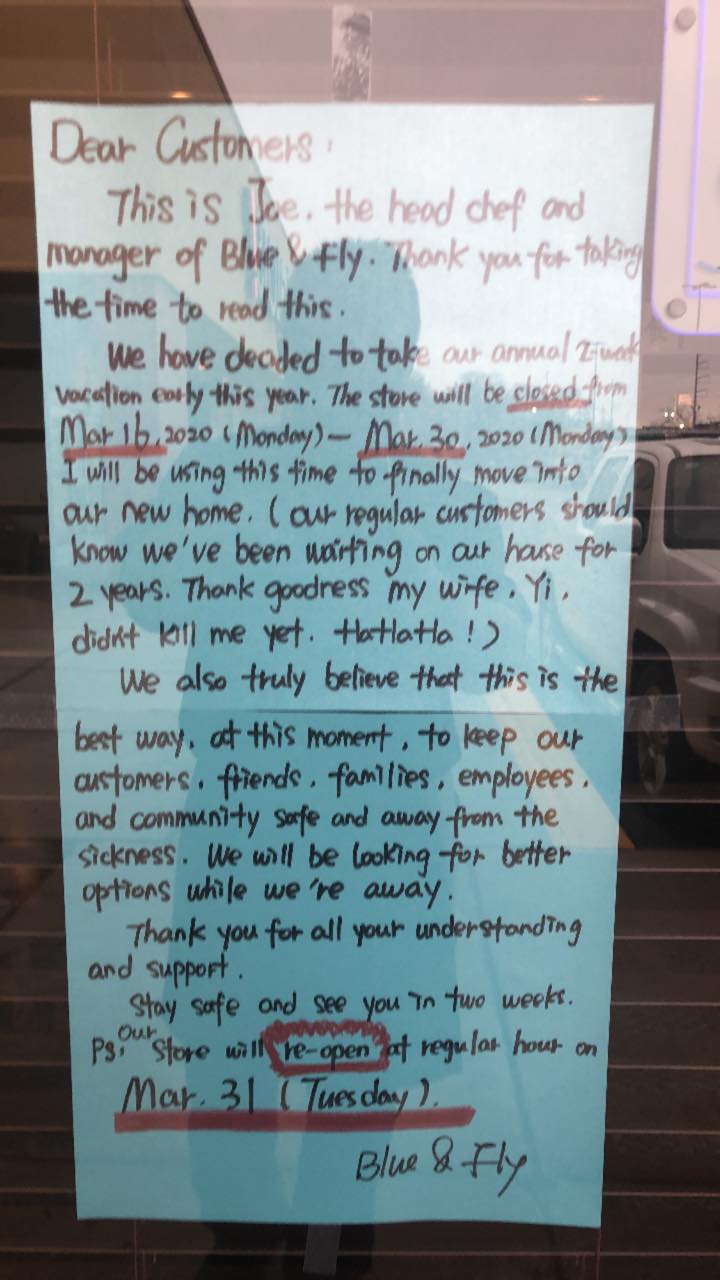 Dear Customers:
This is Joe, the head chef and
manager of Blue & Fly. Thank you for taking
the time to read this.
We have decided to take our annual 2-week
vacation early this year. The store will be closed from
Mar 16, 2020 (Monday) — Mar. 30, 2020 (Monday)
I will be using this time to finally move into
our new home. (our regular customers should
know we've been waiting on our house for
2 years. Thank goodness my wife, Yi,
didn't kill me yet. HaHaHa!)
We also truly believe that this is the
best way, at this moment, to keep our
customers, friends, families, employees,
and community safe and away from the
sickness. We will be looking for better
options while we're away.
Thank you for all your understanding
and support.
Stay safe and see you in two weeks.
Ps: our Store will re-open at regular hour on
Mar. 31 (Tuesday).
Blue & Fly